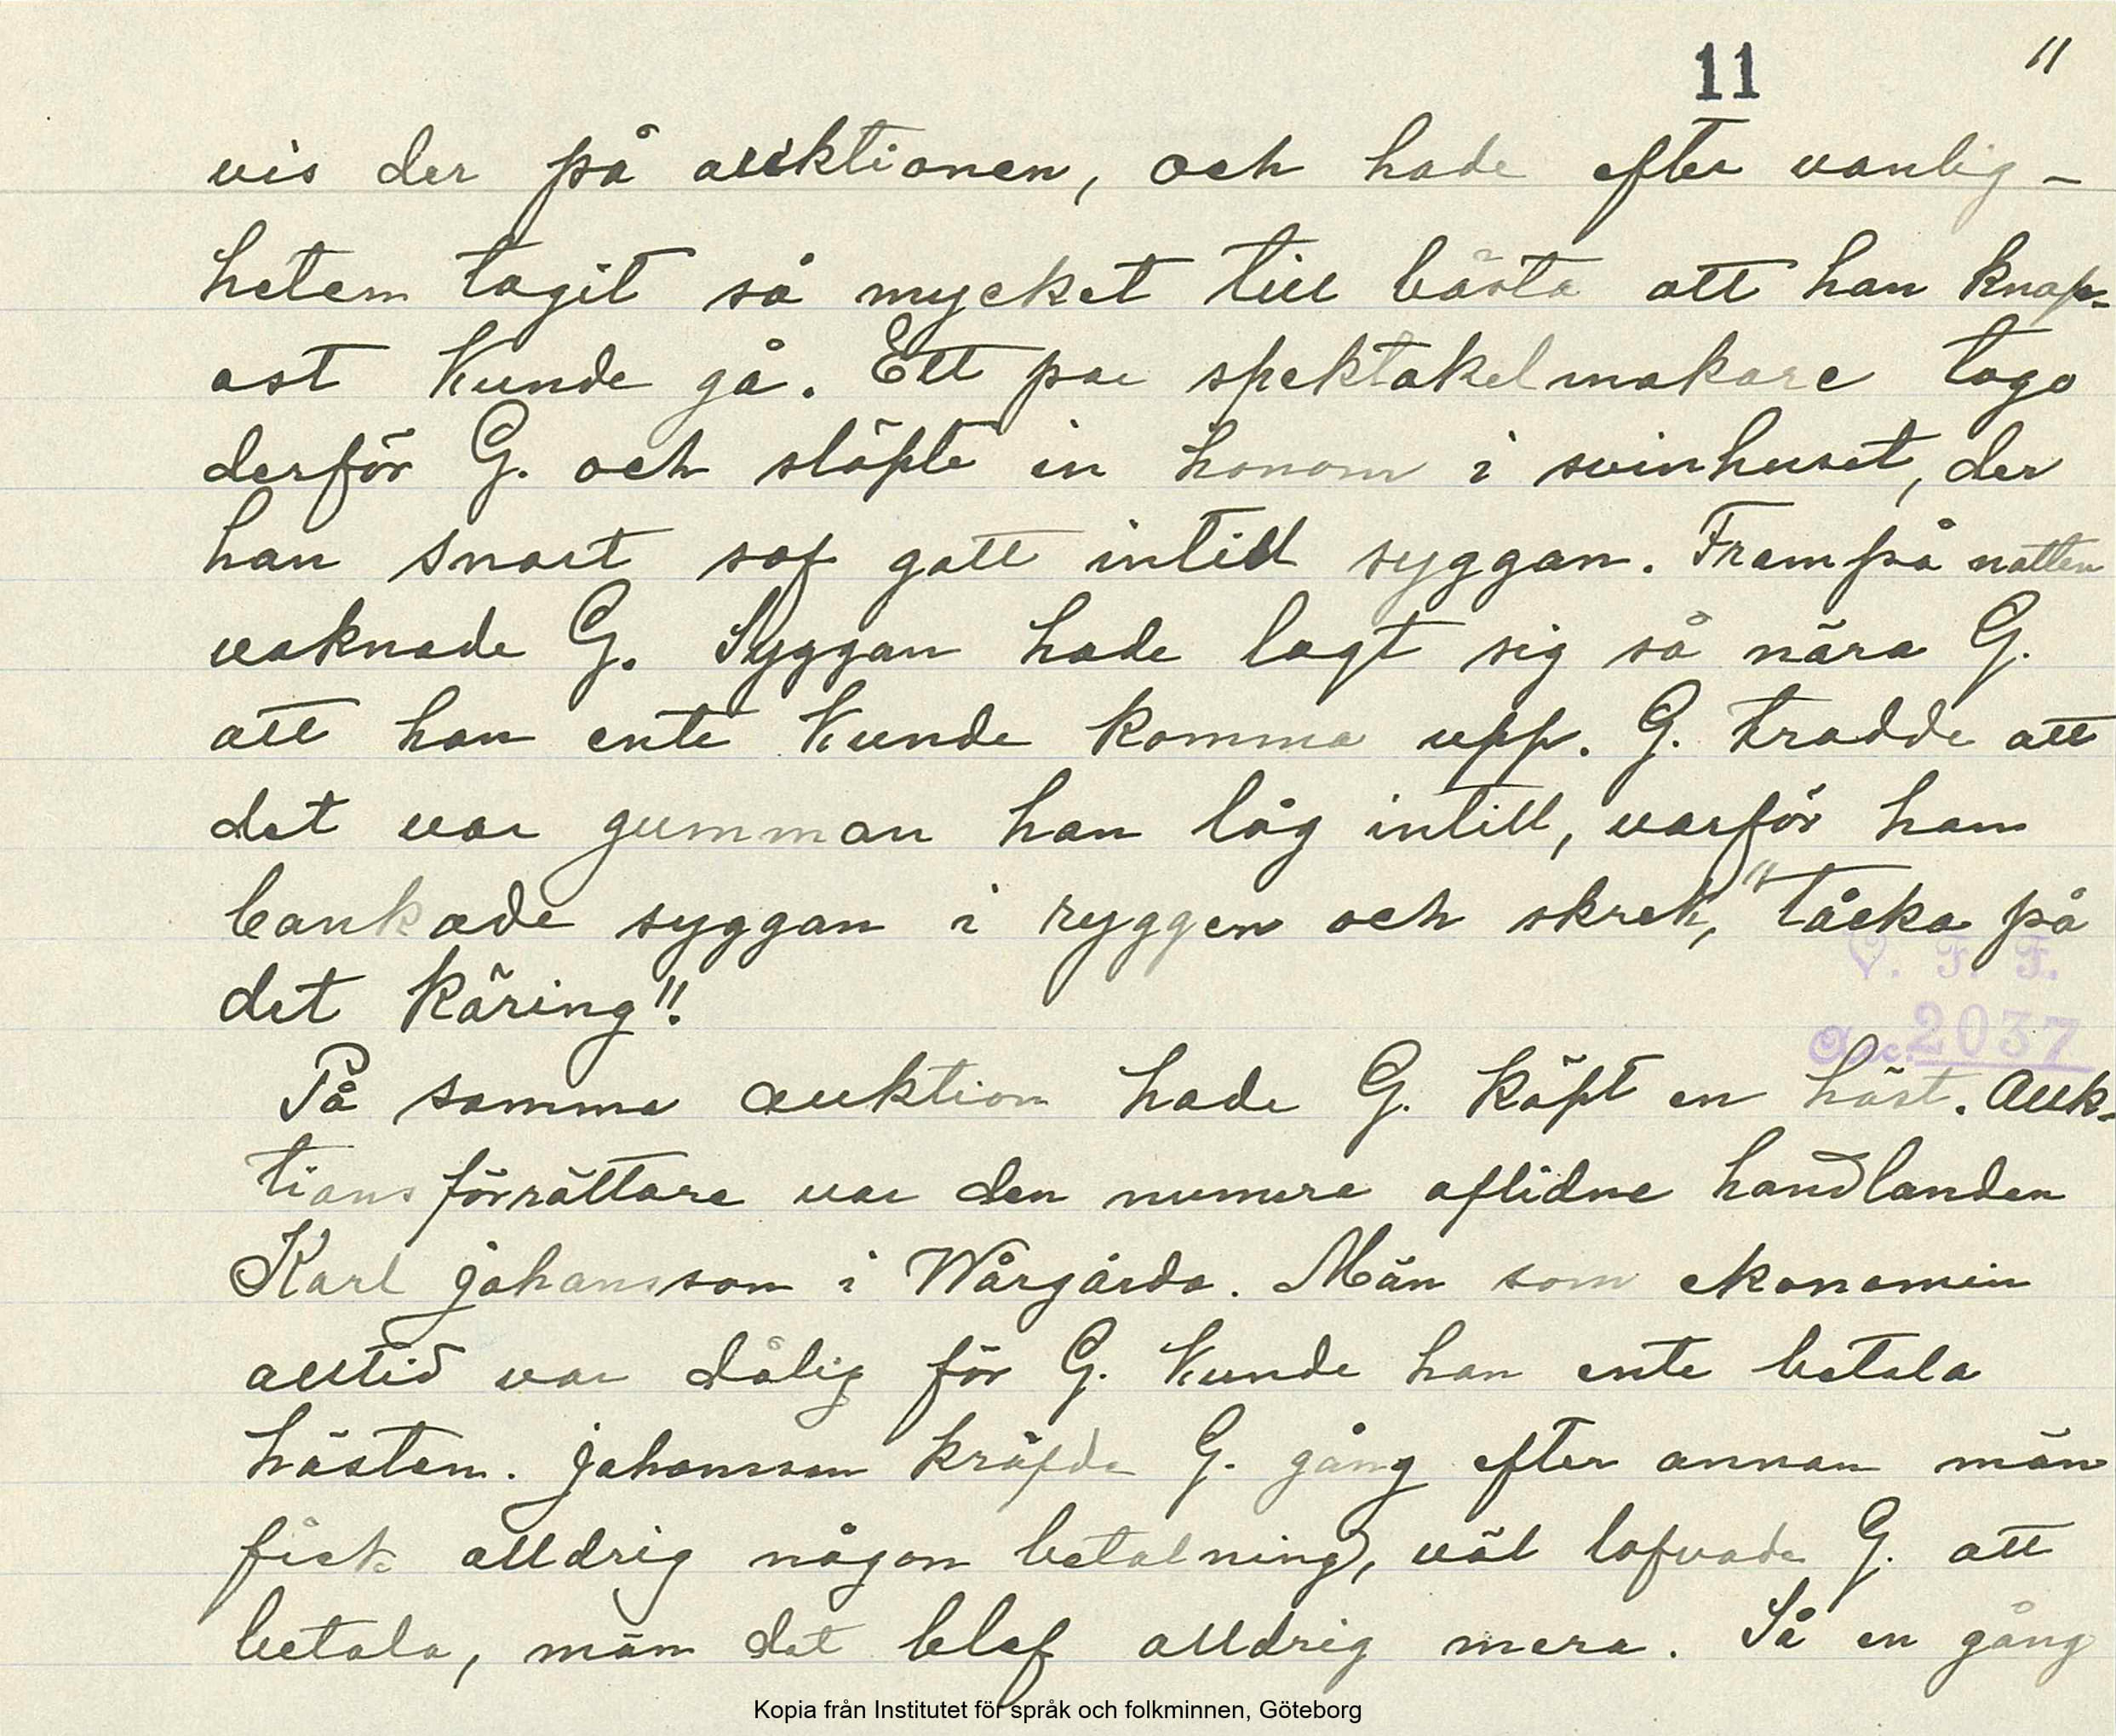 11 11
vis der på auktionen, och hade efter vanlig-
heten tagit så mycket till bästa att han knap-
ast kunde gå. Ett par spektakelmakare togo
derför G. och släpte in honom i svinhuset, der
han snart sof gott intill syggan. Frampå natten
vaknade G. Syggan hade lagt sig så nära G.
att han ente kunde komma upp. G. trodde att
det var gumman han låg intill, varför han
bankade syggan i ryggen och skrek, "tåcka på
det käring"!
V. F. F.
Acc. 2037
På samma auktion hade G. köpt en häst. Auk-
tionsförrättare var den numera aflidne handlanden
Karl Johansson i Wårgårda. Män som ekonomin
alltid var dålig för G. kunde han ente betala
hästen. Johansson kräfde G. gång efter annan män
fick alldrig någon betalning, väl lofvade G. att
betala, män det blef alldrig mera. Så en gång
Kopia från Institutet för språk och folkminnen, Göteborg